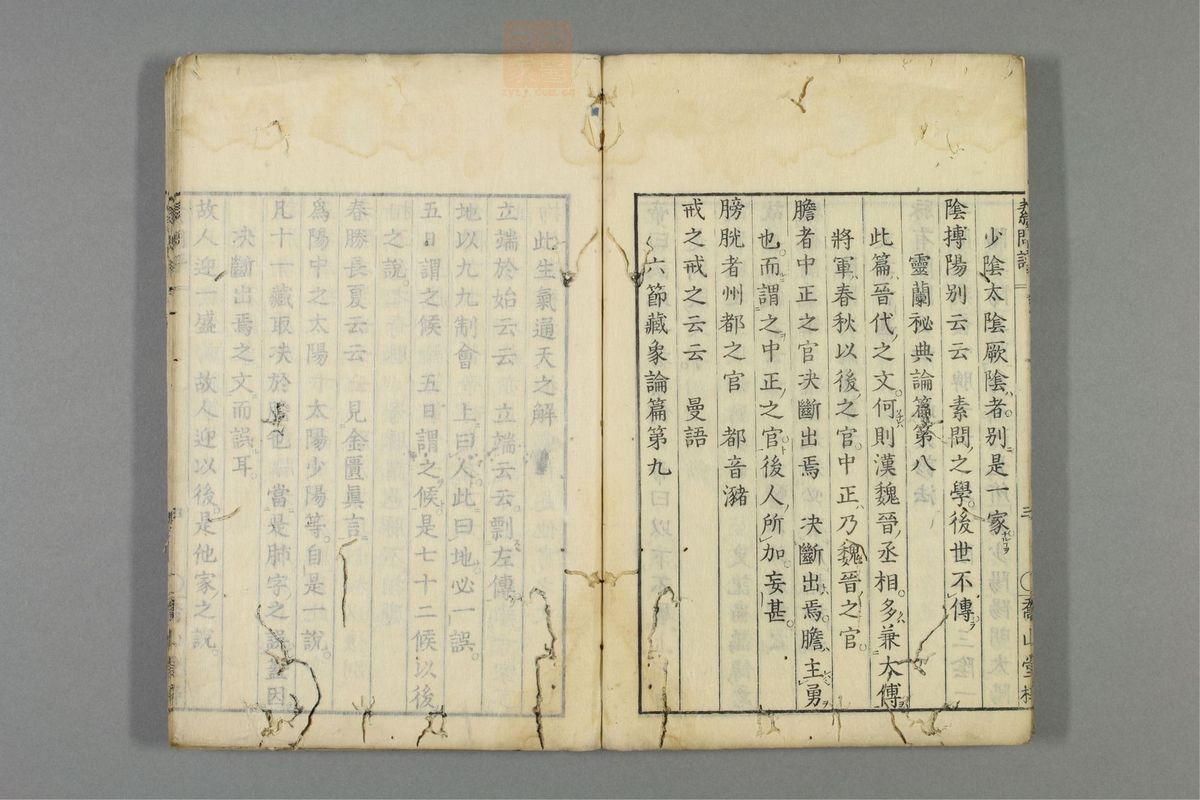 少陰太陰厥陰者別是一家
陰搏陽別云云　素問之學後世不傳
靈蘭祕典論篇第八
此篇晉代之文何則漢魏晉丞相多兼太傅
將軍春秋以後之官中正乃魏晉之官
膽者中正之官決斷出焉　決斷出焉膽主勇
也而謂之中正之官後人所加妄甚
膀胱者州都之官　都音瀦
戒之戒之云云　曼語
六節藏象論篇第九
此生氣通天之解
立端於始云云　立端云云剽左傳
地以九九制會　上曰人此曰地必一誤
五日謂之候　五日謂之候是七十二候以後
之說
春勝長夏云云　見金匱眞言
爲陽中之太陽　太陽少陽等自是一說
凡十一藏取決於膽也　當是肺字之誤蓋因
決斷出焉之文而誤耳
故人迎一盛　故人迎以後是他家之說